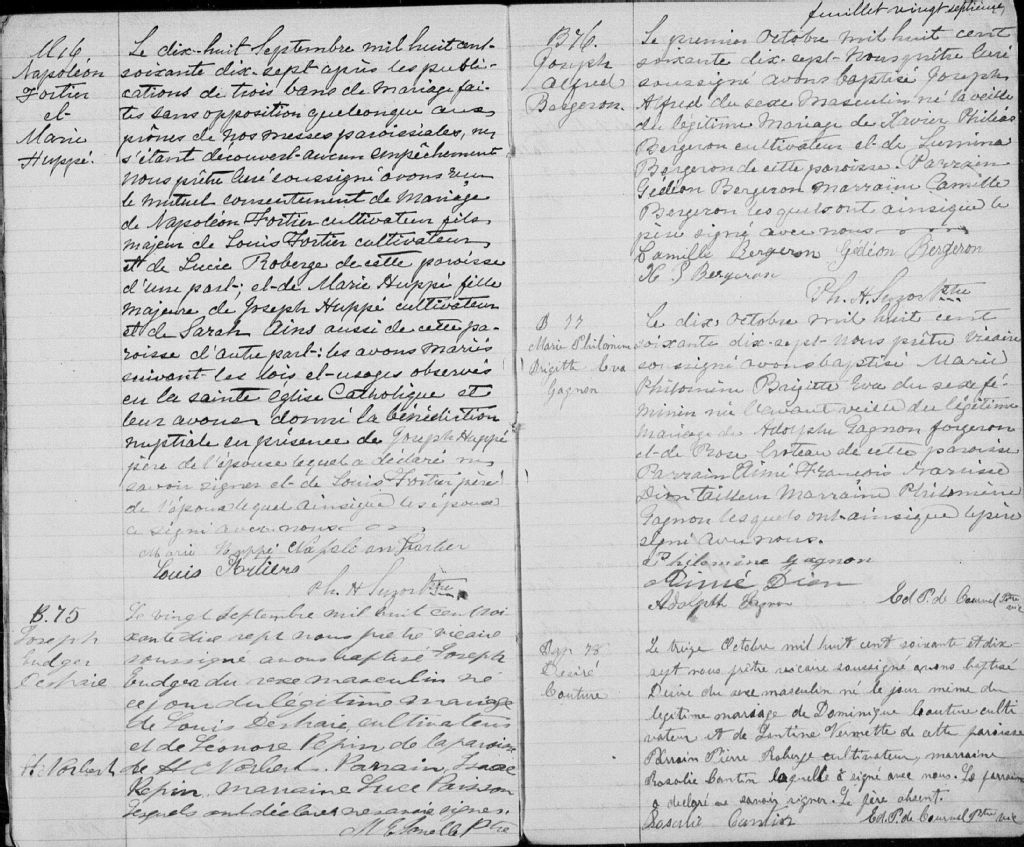 M 16
Napoléon
Fortier
et
Marie
Huppé.
Le dix-huit Septembre mil huit cent
soixante dix-sept après les publi-
cations de trois bans de Mariage fai-
tes sans opposition quelconque aux
prônes de nos messes paroissiales, ne
s'étant découvert aucun empêchement
Nous prêtre curé soussigné avons reçu
le mutuel consentement de Mariage
de Napoléon Fortier cultivateur fils
majeur de Louis Fortier cultivateur
et de Lucie Roberge de cette paroisse
d'une part; et de Marie Huppé fille
majeure de Joseph Huppé cultivateur
et de Sarah Ains aussi de cette pa-
roisse d'autre part: les avons mariés
suivant les lois et usages observés
en la sainte église Catholique et
leur avons donné la bénédiction
nuptiale en présence de Joseph Huppé
père de l'épouse lequel a déclaré ne
savoir signer et de Louis Fortier père
de l'époux lequel ainsi que les époux
a signé avec nous
Marie Huppé Napoléon Fortier
Louis
Ph. H Suzor Ptre
B. 75
Joseph
Eudger
Deshaie
St Norbert
Le vingt septembre mil huit cent soi
xante dix sept nous prêtre vicaire
soussigné avons baptisé Joseph
Eudger du sexe masculin né
ce jour du légitime mariage
de Louis Deshaie, cultivateur
et de Leonore Pepin de la paroisse
de St Norbert. Parrain, Isaac
Pepin, marraine Luce Poisson
lesquels ont déclaré ne savoir signer.
Ptre
feuillet vingt septième
B 76.
Joseph
Alfred
Bergeron
Le premier Octobre mil huit cent
soixante dix-sept Nous prêtre curé
soussigné avons baptisé Joseph
Alfred du sexe Masculin né la veille
du légitime Mariage de Xavier Philéas
Bergeron cultivateur et de Lumina
Bergeron de cette paroisse. Parrain
Gédéon Bergeron marraine Camille
Bergeron lesquels ont ainsi que le
père signé avec nous
Camille Bergeron Gédéon Bergeron
Bergeron
Ph. H. Suzor Ptre
B 77
Marie Philomène
Brigitte Eva
Gagnon
Le dix Octobre mil huit cent
soixante dix-sept Nous prêtre Vicaire
soussigné avons baptisé Marie
Philomène Brigitte Eva du sexe fé-
minin née l'avant veille du légitime
mariage de Adolphe Gagnon forgeron
et de Rose Croteau de cette paroisse
Parrain Aimé François Narcisse
Dion tailleur Marraine Philomène
Gagnon lesquels ont ainsi que le père
signé avec nous.
Philomène Gagnon
Aimé Dion
Adolphe Gagnon Ed. P. de Courval Ptre vic
Bap. 78
Désiré
Couture
Le treize Octobre mil huit cent soixante et dix-
sept nous prêtre vicaire soussigné avons baptisé
Désiré du sexe masculin né le jour même du
legitime mariage de Dominique Couture culti
vateur et de Vermette de cette paroisse
Parrain Pierre Roberge cultivateur, marraine
Rosalie Cantin laquelle a signé avec nous. Le parrain
a déclaré ne savoir signer. Le père absent.
Rosalie Cantin Ed. P. de Courval Ptre vic